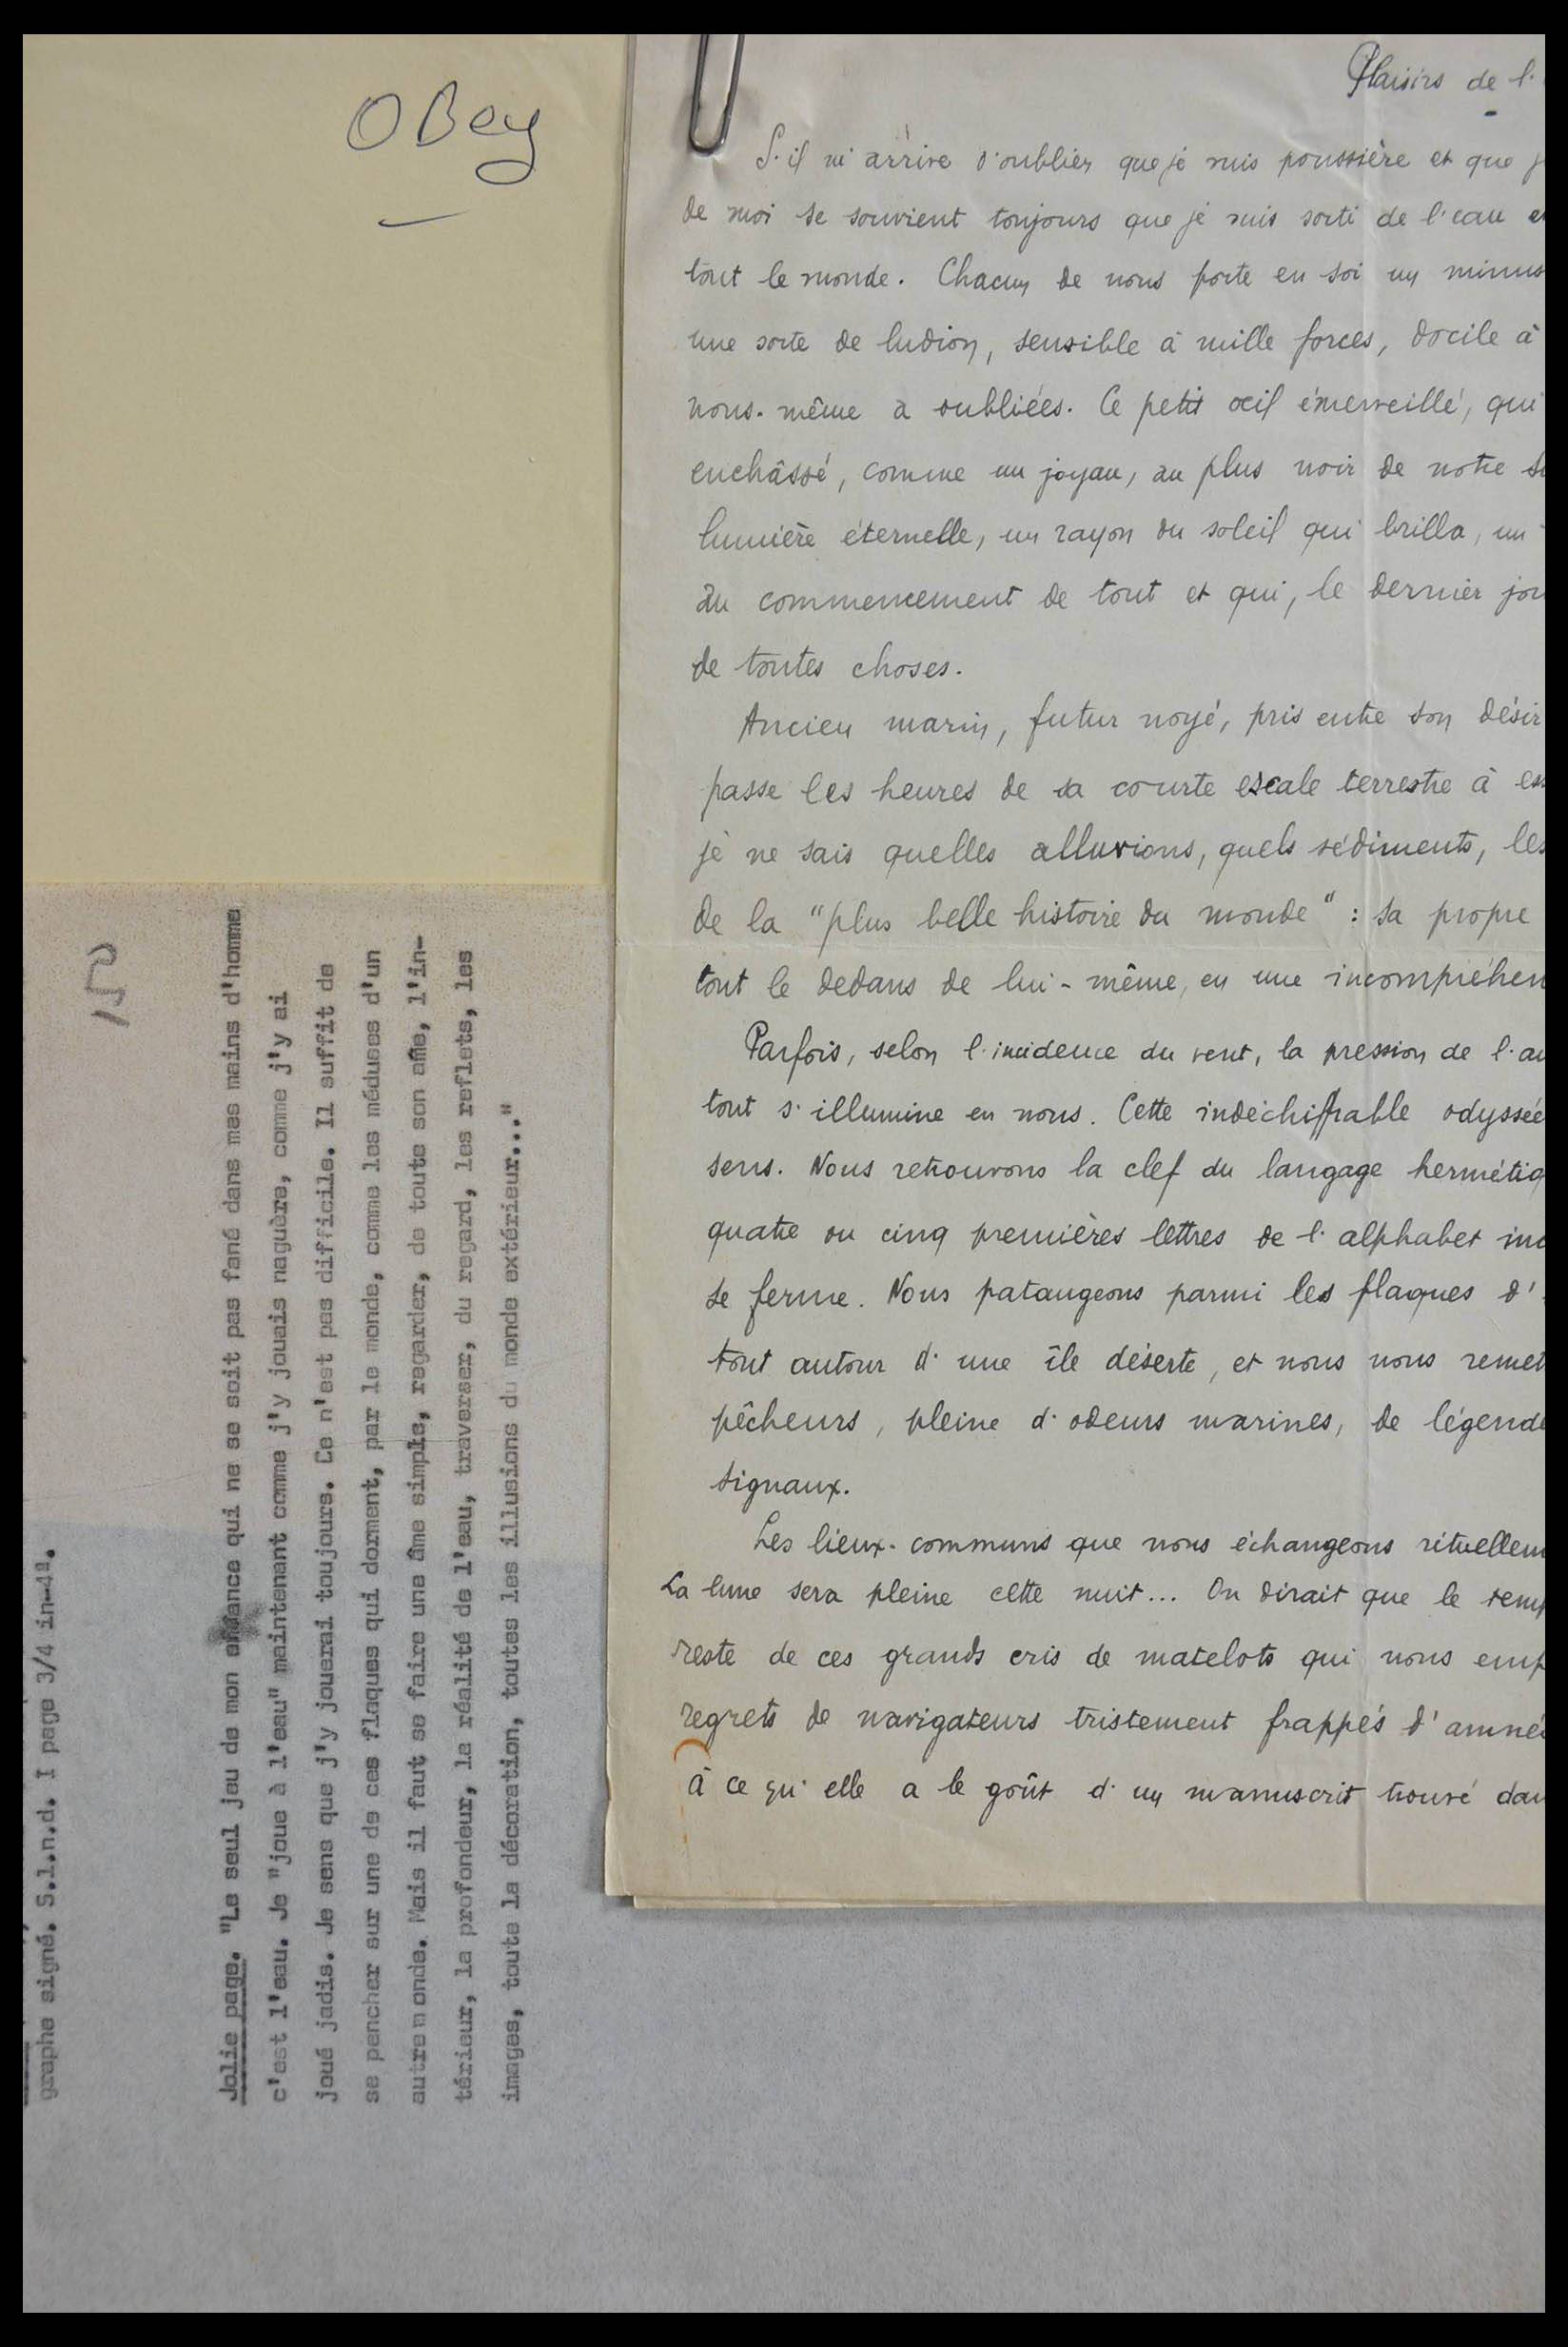 OBey
Plaisirs de l'
S'il m'arrive d'oublier que je suis poussière et que
de moi se souvient toujours que je suis sorti de l'eau
tout le monde. Chacun de nous porte en soi un minus
une sorte de ludion, sensible à mille forces, docile à
nous-même a oubliées. Ce petit œil émerveillé, qui
enchâssé, comme un joyau, au plus noir de notre
lumière éternelle, un rayon du soleil qui brilla, un
au commencement de tout et qui, le dernier jou
de toutes choses.
Ancien marin, futur noyé, pris entre son désir
passe les heures de sa courte escale terrestre à es
je ne sais quelles alluvions, quels sédiments, les
de la "plus belle histoire du monde" : sa propre
tout le dedans de lui-même, en une incompréhen
Parfois, selon l'incidence du vent, la pression de l'
tout s'illumine en nous. Cette indéchiffrable odyssée
sens. Nous retrouvons la clef du langage hermétiq
quatre ou cinq premières lettres de l'alphabet inc
se ferme. Nous pataugeons parmi les flaques d'
tout autour d'une île déserte, et nous nous remet
pêcheurs, pleine d'odeurs marines, de légende
signaux.
Les lieux-communs que nous échangeons rituellem
La lune sera pleine cette nuit... On dirait que le
reste de ces grands cris de matelots qui nous emp
regrets de navigateurs tristement frappés d'amné
à ce qu'elle a le goût d'un manuscrit trouvé dan
150
graphe signé. S.l.n.d. I page 3/4 in-4º.
Jolie page. "Le seul jeu de mon enfance qui ne se soit pas fané dans mes mains d'homme
c'est l'eau. Je "joue à l'eau" maintenant comme j'y jouais naguère, comme j'y ai
joué jadis. Je sens que j'y jouerai toujours. Ce n'est pas difficile. Il suffit de
se pencher sur une de ces flaques qui dorment, par le monde, comme les méduses d'un
autre monde. Mais il faut se faire une âme simple, regarder, de toute son âme, l'in-
térieur, la profondeur, la réalité de l'eau, traverser, du regard, les reflets, les
images, toute la décoration, toutes les illusions du monde extérieur..."